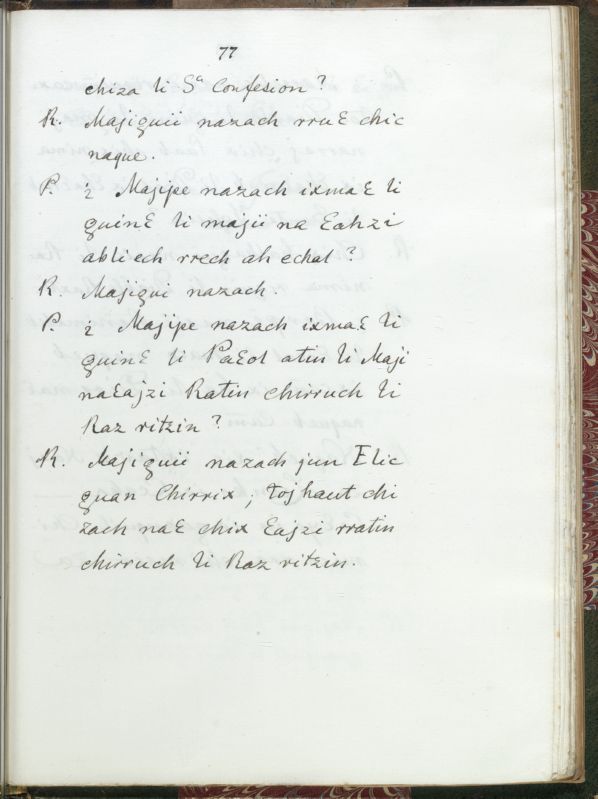 77
chiza li Sª Confesion?
R. Majiguii nazach rruƐ chic
naque.
P. ¿ Majipe nazach ixmaƐ li
guinƐ li majii na Ɛahzi
abliech rrech ah echal?
R. Majigui nazach.
P. ¿ Majipe nazach ixmaƐ li
guinƐ li PaƐol atin li Maji
naƐajzi Ratin chirruch li
Raz ritzin?
R. Majiguii nazach jun Ɛlic
guan Chirrix; toj haut chi
zach naƐ chix Ɛajzi rratin
chirruch li Raz ritzin.